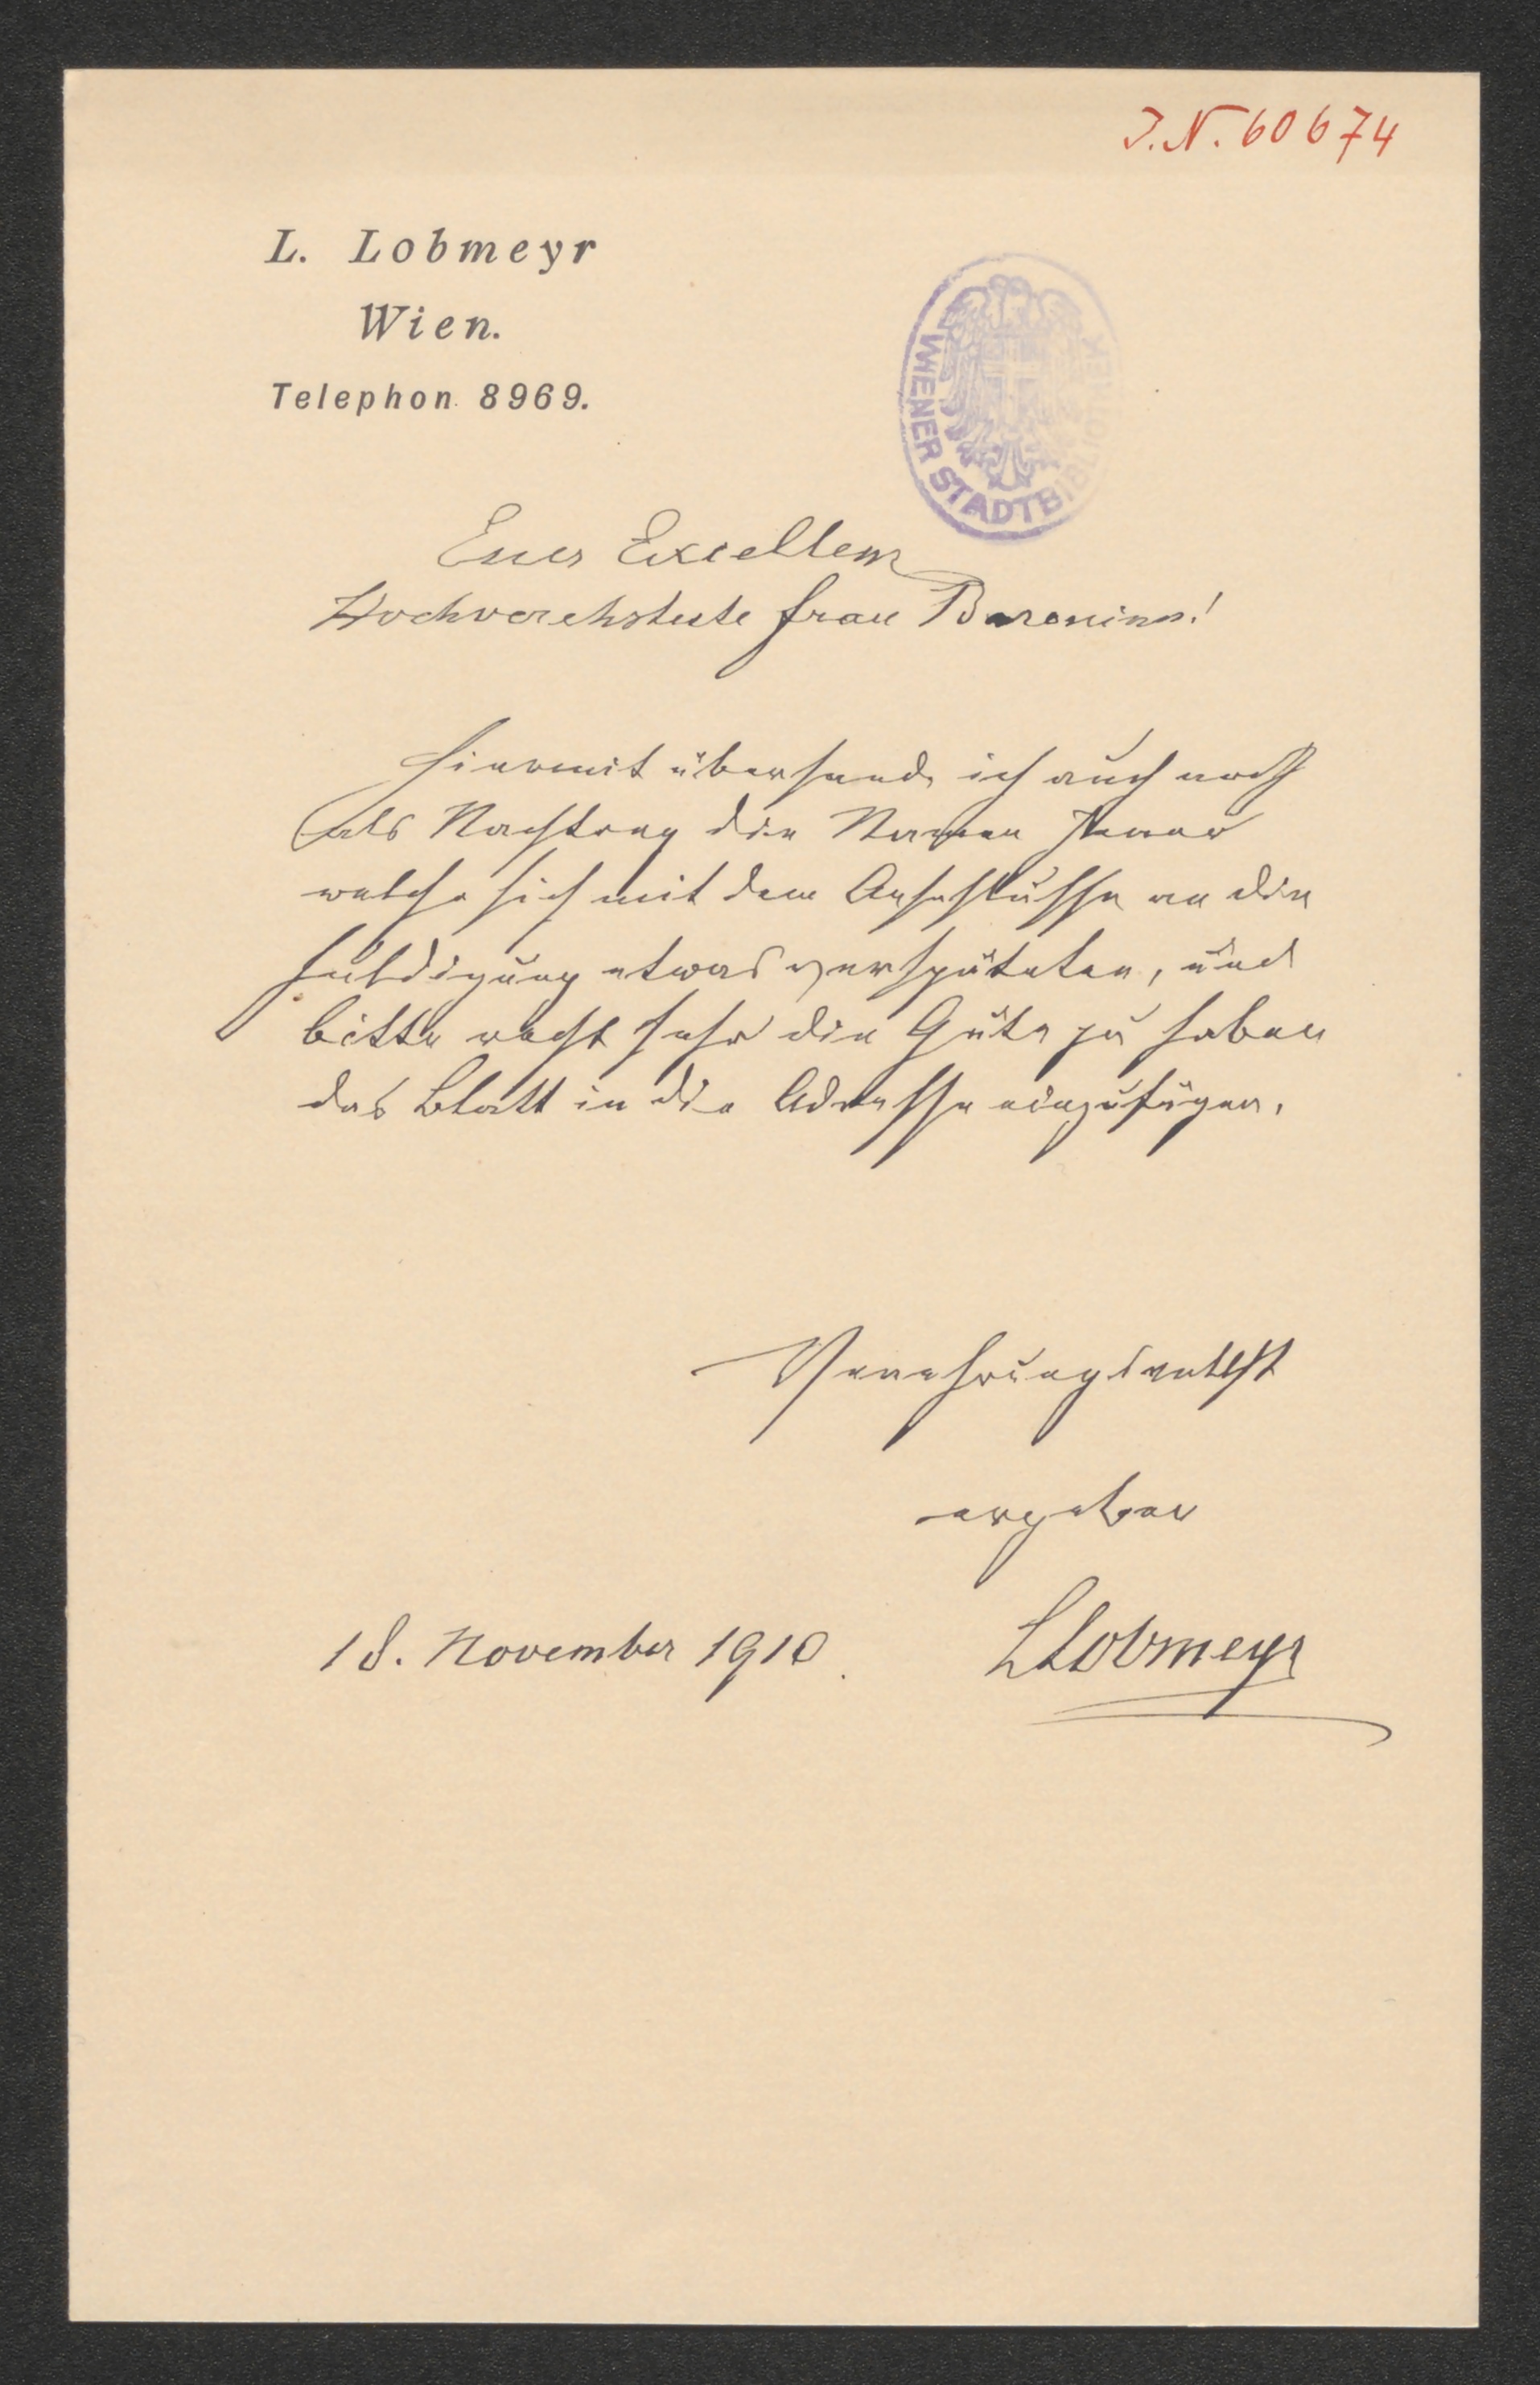 J.N. 60674
L. Lobmeyr
Wien.
Telephon 8969.
WIENER STADTBIBLIOTHEK
Euer Excellenz
Hochverehrteste Frau Baronin!
Hiermit übersende ich auch noch
als Nachtrag die Namen Jener
welche sich mit dem Anschlusse an die
Huldigung etwas verspäteten, und
bitte recht sehr die Güte zu haben
das Blatt in die Adresse einzufügen.
Verehrungsvollst
ergeben
18. November 1910.
LLobmeyr